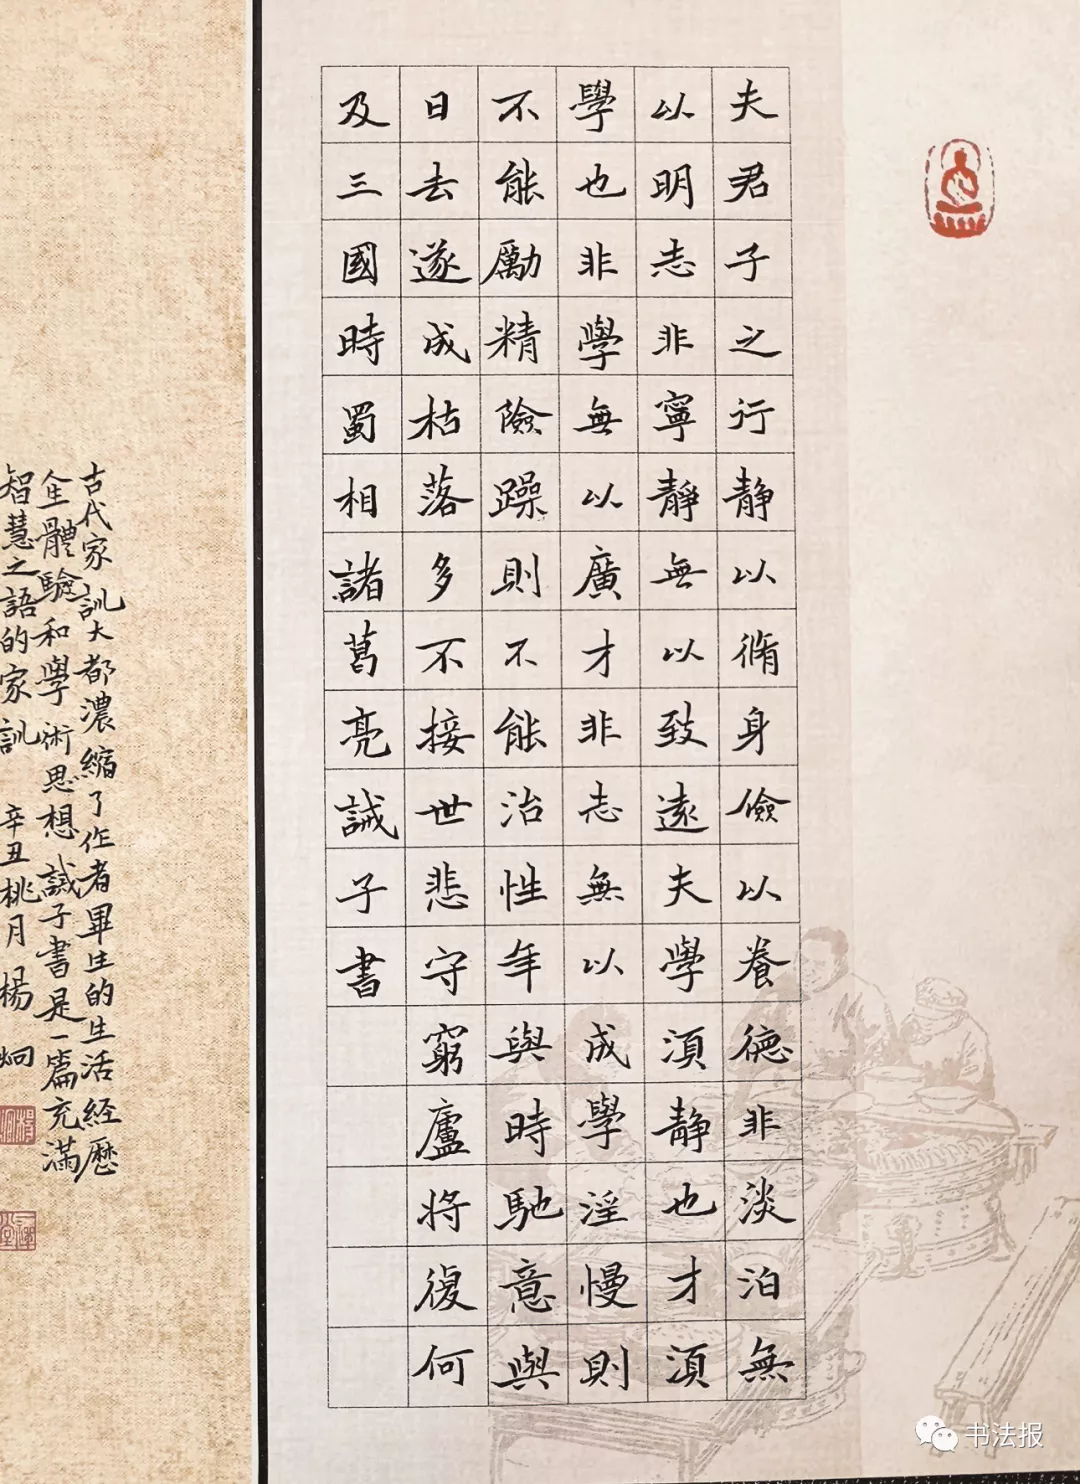 夫君子之行静以脩身儉以養德非淡泊無
以明志非寧靜無以致遠夫學須静也才須
學也非學無以廣才非志無以成學淫慢則
不能勵精險躁則不能治性年與時馳意與
日去遂成枯落多不接世悲守窮廬將復何
及三國時蜀相諸葛亮誡子書
古代家訓大都濃縮了作者畢生的生活經歷
全體驗和學術思想誡子書是一篇充滿
智慧之語的家訓 辛丑桃月楊炯
书法报